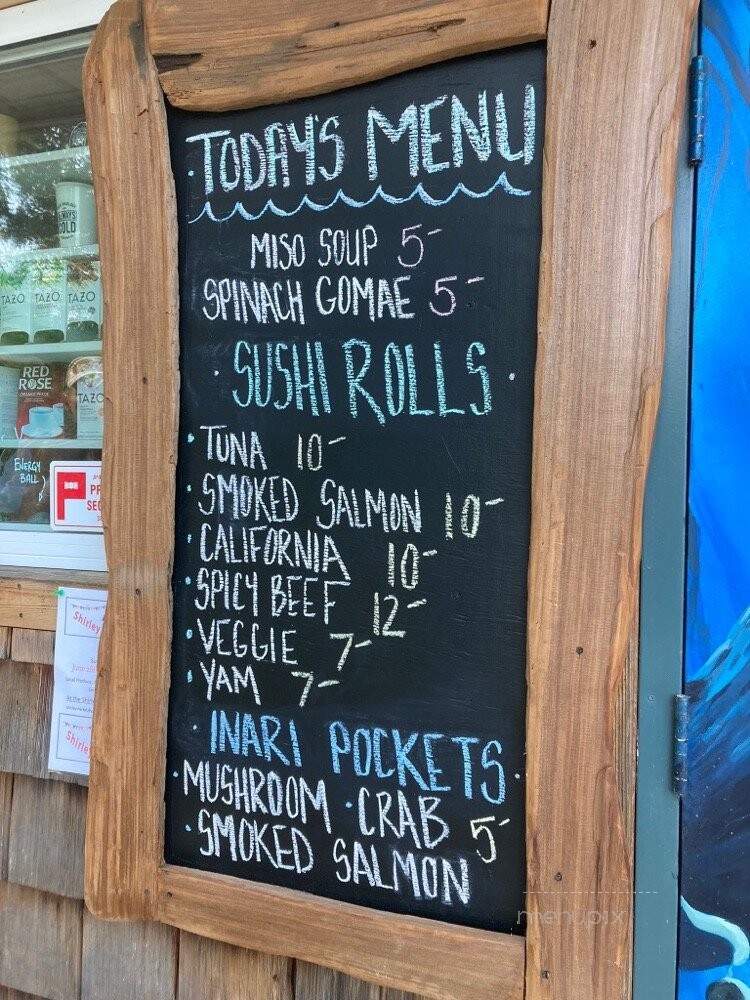 TODAY'S MENU
MISO SOUP 5-
SPINACH GOMAE 5-
· SUSHI ROLLS ·
· TUNA 10-
· SMOKED SALMON 10-
· CALIFORNIA 10-
· SPICY BEEF 12-
· VEGGIE 7-
· YAM 7-
· INARI POCKETS ·
· MUSHROOM · CRAB 5-
· SMOKED SALMON
ALWAYS
TAZO
TAZO
TAZO
RED
ROSE
TAZO
ENERGY
BALL
P
Shirley
Shirley
menupix